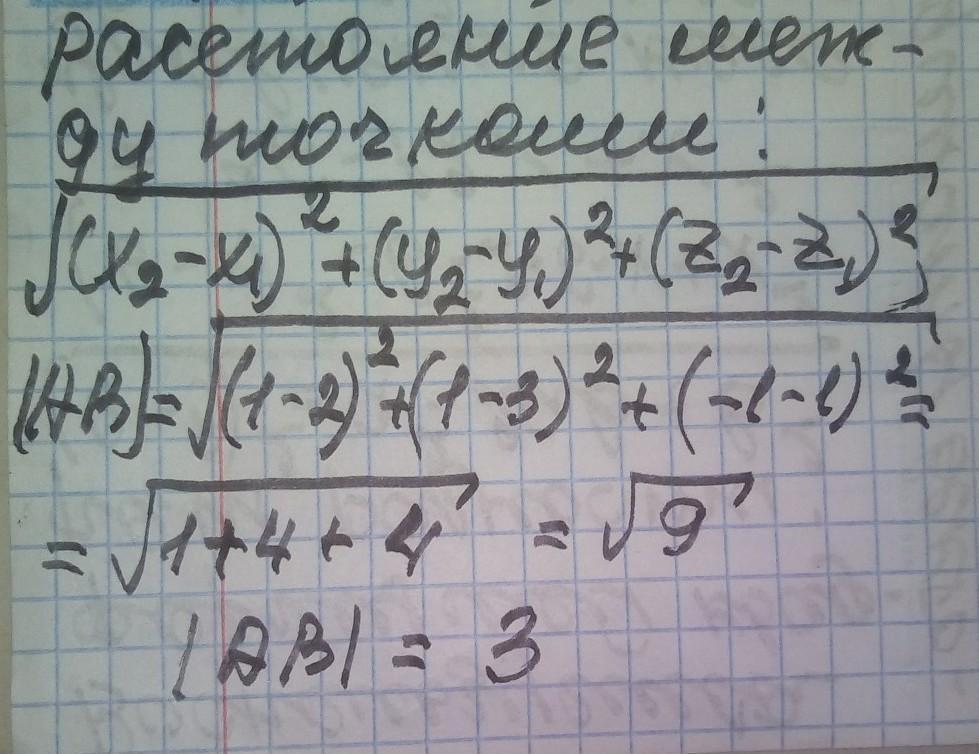 расстояние меж-
ду точками:
√(x₂-x₁)²+(y₂-y₁)²+(z₂-z₁)²;
|AB|=√(1-2)²+(1-3)²+(-1-1)²=
=√1+4+4 = √9
|AB| = 3